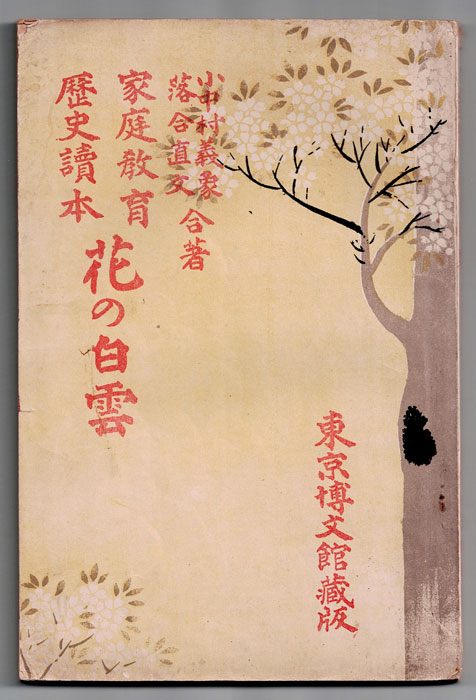 小中村義象
落合直文
合著
家庭教育
歴史讀本
花の白雲
東京博文館藏版